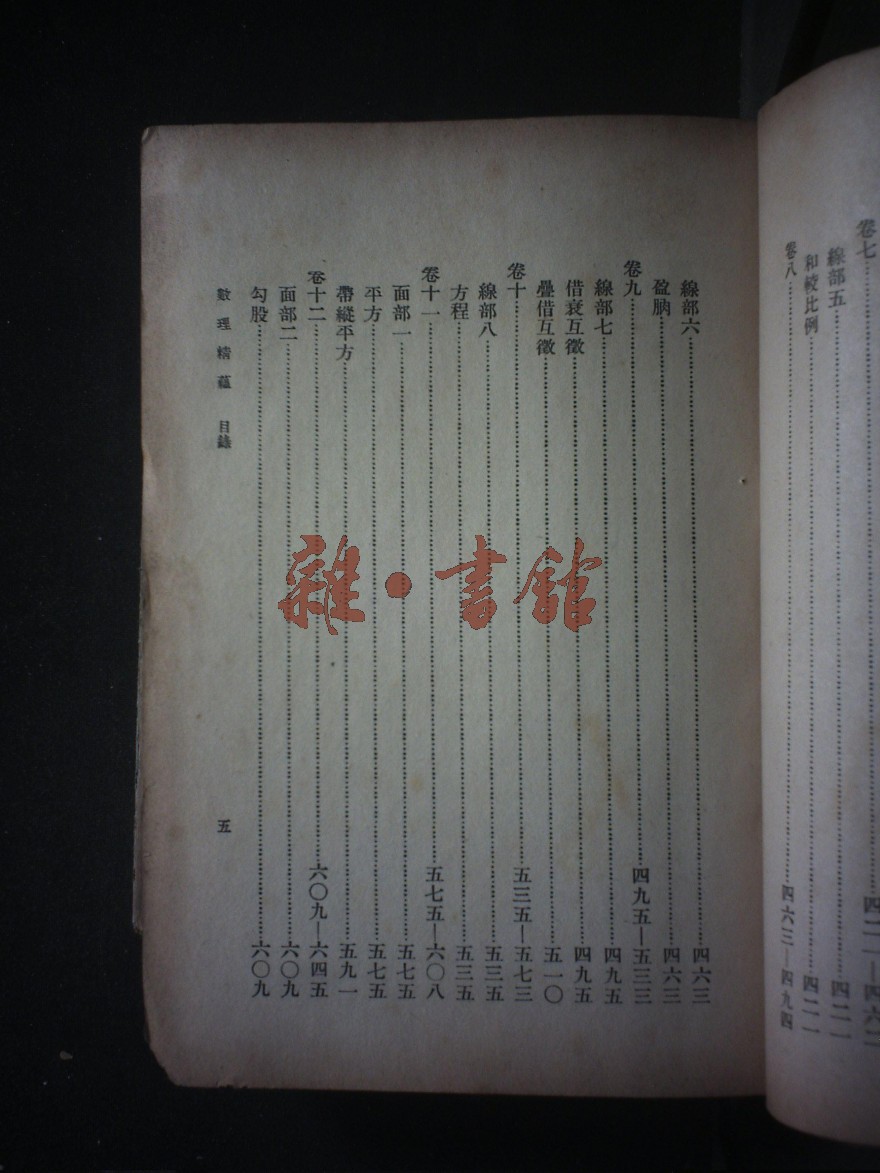 卷七……四二一—四六二
線部五……四二一
和較比例……四二一
卷八……四六三—四九四
線部六……四六三
盈朒……四六三
卷九……四九五—五三三
線部七……四九五
借衰互徵……四九五
疊借互徵……五一〇
卷十……五三五—五七三
線部八……五三五
方程……五三五
卷十一……五七五—六〇八
面部一……五七五
平方……五七五
帶縱平方……五九一
卷十二……六〇九—六四五
面部二……六〇九
勾股……六〇九
數理精蘊 目錄 五
雜·書館